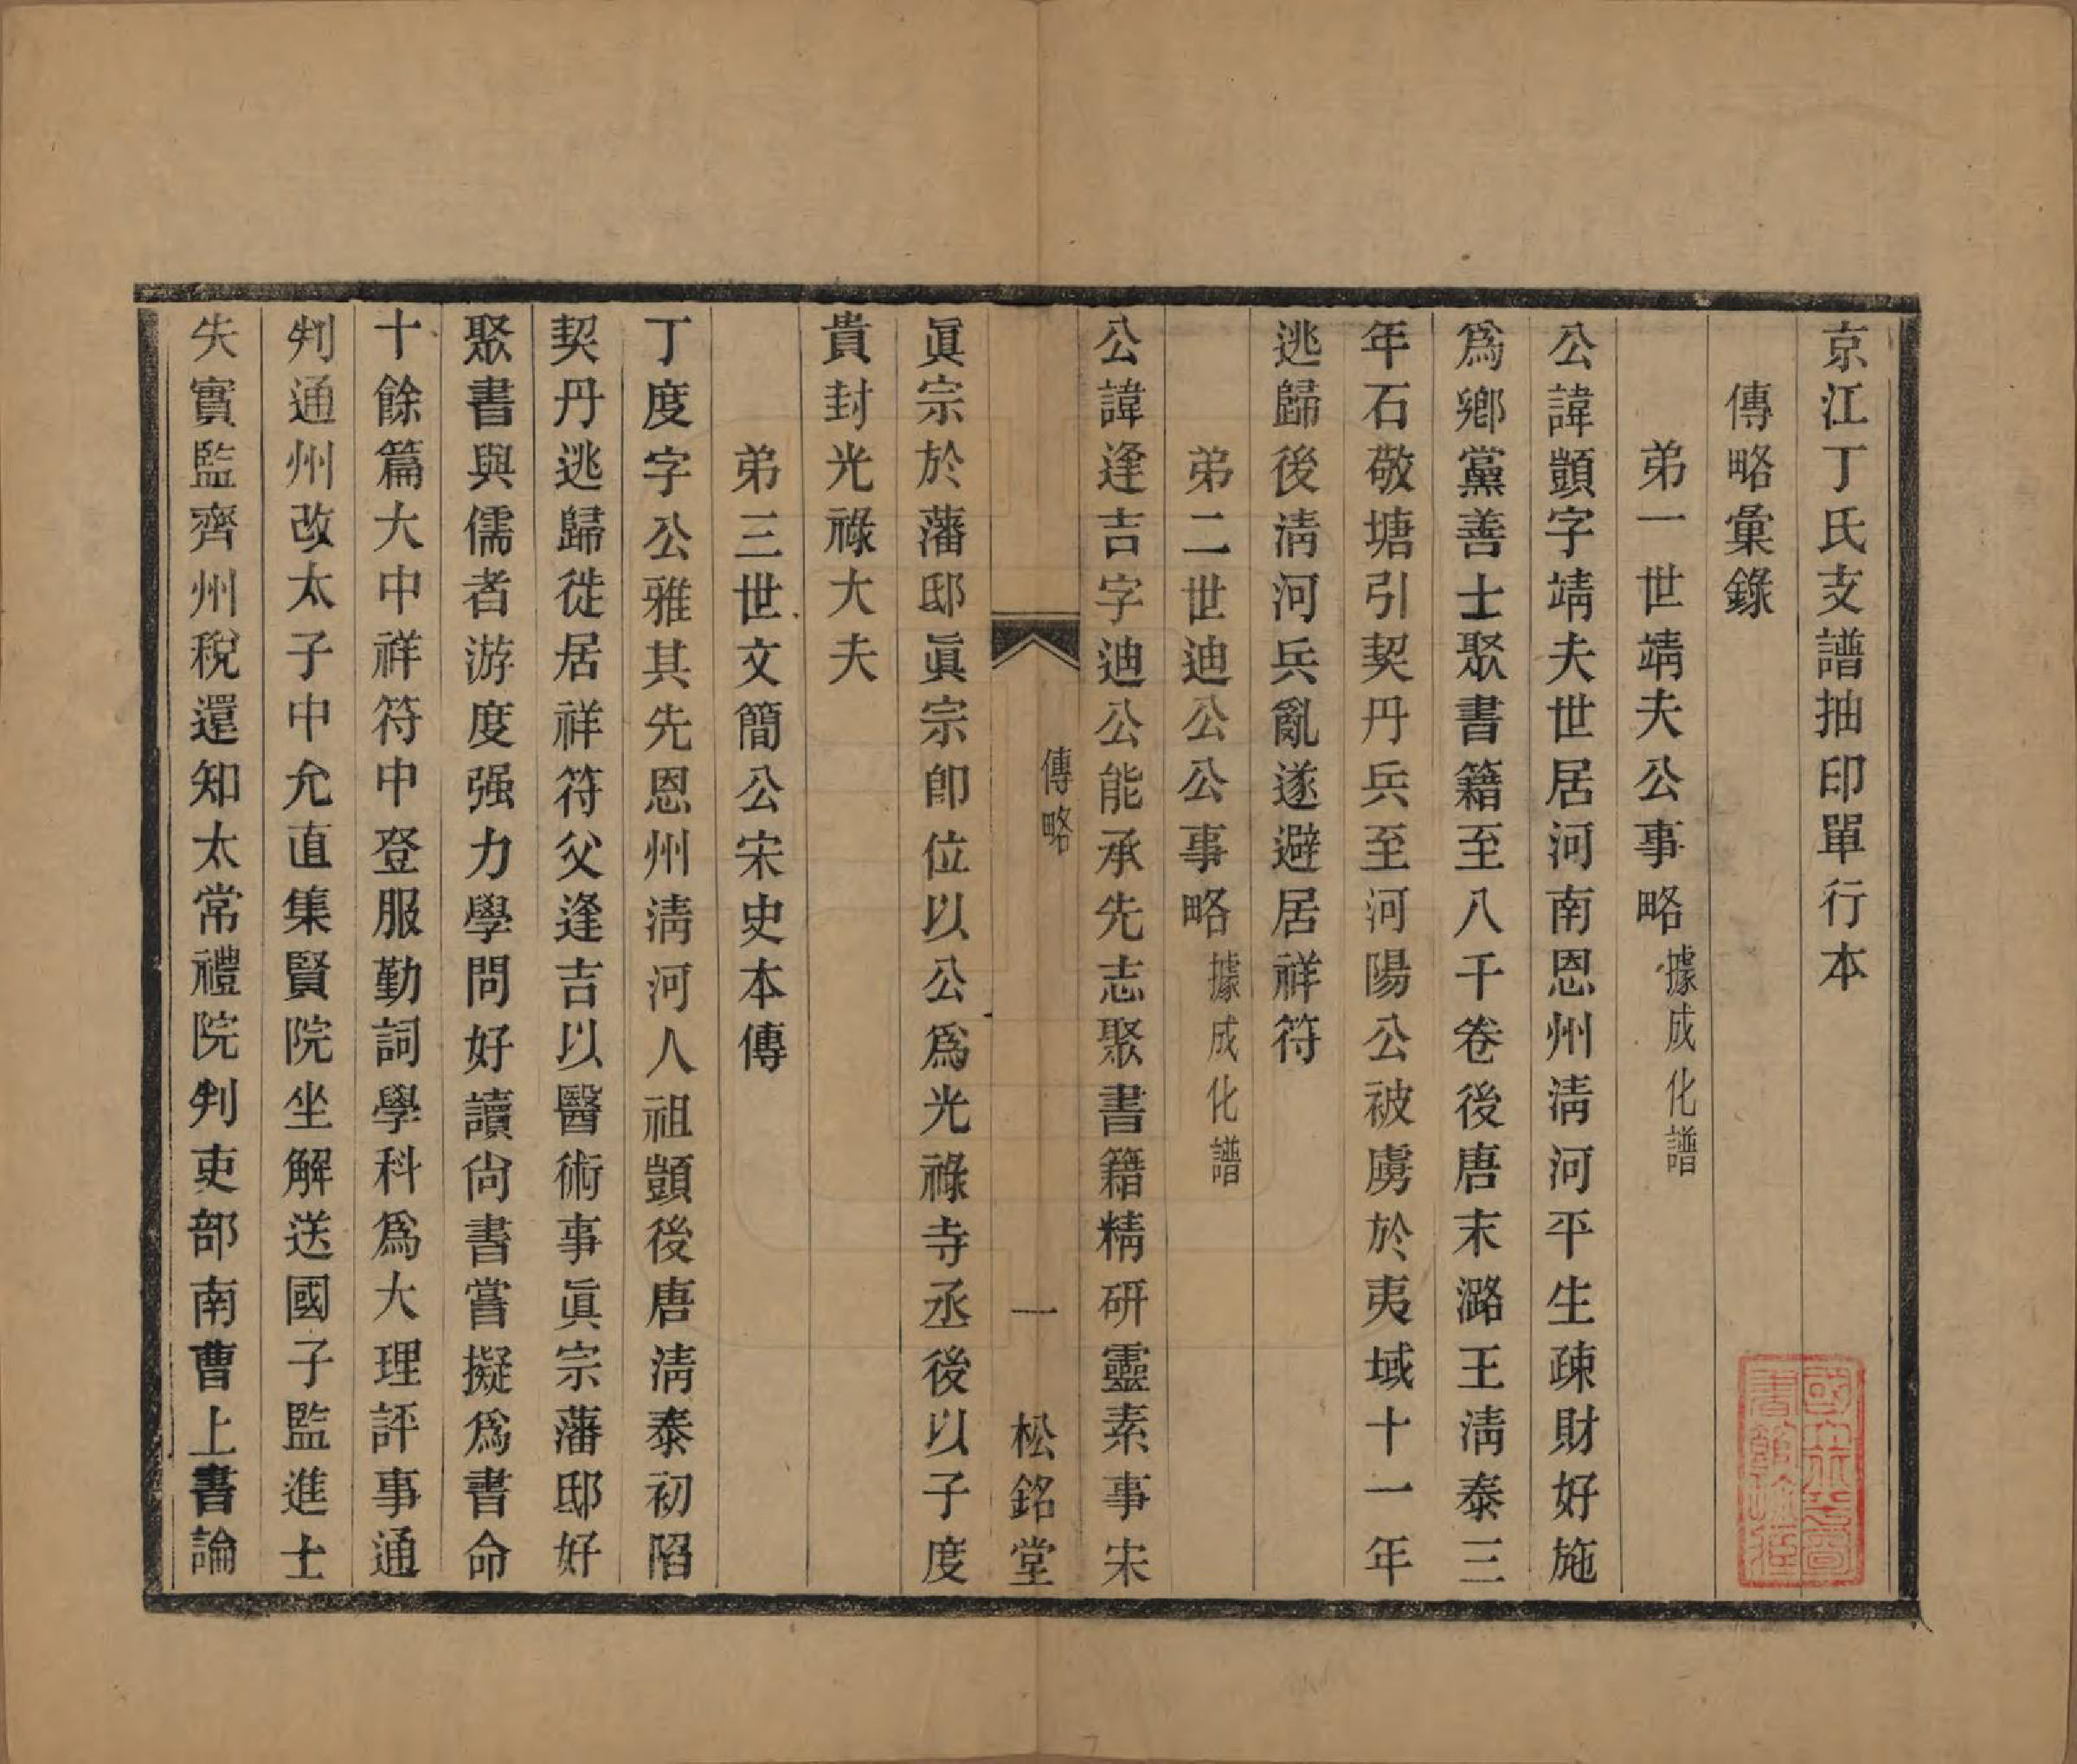 京江丁氏支譜抽印單行本
傳略彙錄
弟一世靖夫公事略據成化譜
公諱顗字靖夫世居河南恩州淸河平生疎財好施
爲鄉黨善士聚書籍至八千卷後唐末潞王淸泰三
年石敬塘引契丹兵至河陽公被虜於夷域十一年
逃歸後淸河兵亂遂避居祥符
弟二世迪公公事略據成化譜
公諱逢吉字迪公能承先志聚書籍精研靈素事宋
傳略 一 松銘堂
眞宗於藩邸眞宗卽位以公爲光祿寺丞後以子度
貴封光祿大夫
弟三世文簡公宋史本傳
丁度字公雅其先恩州淸河人祖顗後唐淸泰初陷
契丹逃歸徙居祥符父逢吉以醫術事眞宗藩邸好
聚書與儒者游度强力學問好讀尙書嘗擬爲書命
十餘篇大中祥符中登服勤詞學科爲大理評事通
判通州改太子中允直集賢院坐解送國子監進士
失實監齊州稅還知太常禮院判吏部南曹上書論